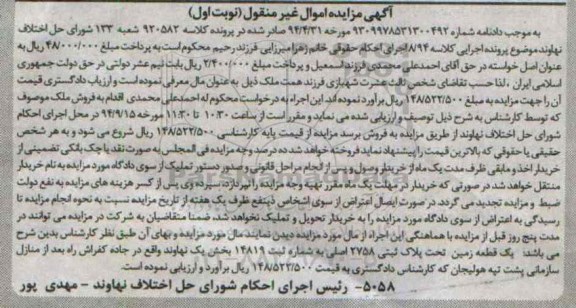 آگهی مزایده اموال غیر منقول (نوبت اول)
به موجب دادنامه شماره ۹۳۰۹۹۷۸۵۳۱۳۰۰۴۹۲ مورخه ۹۴/۴/۳۱ صادر شده در پرونده کلاسه ۹۲۰۵۸۲ شعبه ۱۳۳ شورای حل اختلاف
نهاوند موضوع پرونده اجرایی کلاسه ۸/۹۴ اجرای احکام حقوقی خانم زهرا میرزایی فرزند رحیم محکوم است به پرداخت مبلغ ۴۸/۰۰۰/۰۰۰ ریال به
عنوان اصل خواسته در حق آقای احمدعلی محمدی فرزند اسمعیل و پرداخت مبلغ ۲/۴۰۰/۰۰۰ ریال بابت نیم عشر دولتی در حق دولت جمهوری
اسلامی ایران ، لذا حسب تقاضای شخص ثالث عشرت شهبازی فرزند همت ملک ذیل به عنوان مال معرفی نموده است و ارزیاب دادگستری قیمت
آن را جهت مزایده به مبلغ ۱۴۸/۵۲۲/۵۰۰ ریال برآورد نموده اند این اجراء به درخواست محکوم له احمدعلی محمدی اقدام به فروش ملک موصوف
که توسط کارشناس به شرح ذیل توصیف و ارزیابی شده می نماید و مقرر است از ساعت ۱۰:۳۰ تا ۱۱:۳۰ مورخه ۹۴/۹/۱۵ در محل اجرای احکام
شورای حل اختلاف نهاوند از طریق مزایده به فروش برسد مزایده از قیمت پایه کارشناسی ۱۴۸/۵۲۲/۵۰۰ ریال شروع می شود و به هر شخص
حقیقی یا حقوقی که بالاترین قیمت را پیشنهاد نماید فروخته خواهد شد ده درصد وجه مزایده فی المجلس به صورت نقد یا چک بانکی تضمینی از
خریدار اخذ و مابقی ظرف مدت یک ماه از خریدار وصول و پس از انجام مراحل قانونی و صدور دستور تملیک از سوی دادگاه مورد مزایده به نام خریدار
منتقل خواهد شد در صورتی که خریدار در مهلت یک ماه مقرر بقیه وجه مزایده را نپردازد، سپرده وی پس از کسر هزینه های مزایده به نفع دولت
ضبط و مزایده تجدید می گردد. در صورت ایصال اعتراض از سوی اشخاص ذینفع ظرف یک هفته از تاریخ مزایده نسبت به نحوه انجام مزایده تا
رسیدگی به اعتراض از سوی دادگاه مورد مزایده را به خریدار تحویل و تملیک نخواهد شد، ضمنا متقاضیان به شرکت در مزایده می توانند در
مدت پنج روز قبل از مزایده با هماهنگی این اجراء از مال مورد مزایده دیدن نمایند مال مورد مزایده و بهای آن طبق نظر کارشناس بدین شرح
می باشد: یک قطعه زمین تحت پلاک ثبتی ۲۷۵۸ اصلی به شماره ثبت ۱۴۸۱۹ بخش یک نهاوند واقع در جاده کفراش راه بعد از منازل
سازمانی پشت تپه هولیجان که کارشناس دادگستری به قیمت ۱۴۸/۵۲۲/۵۰۰ ریال برآورد و ارزیابی نموده است.
۵۰۵۸- رئیس اجرای احکام شورای حل اختلاف نهاوند - مهدی پور